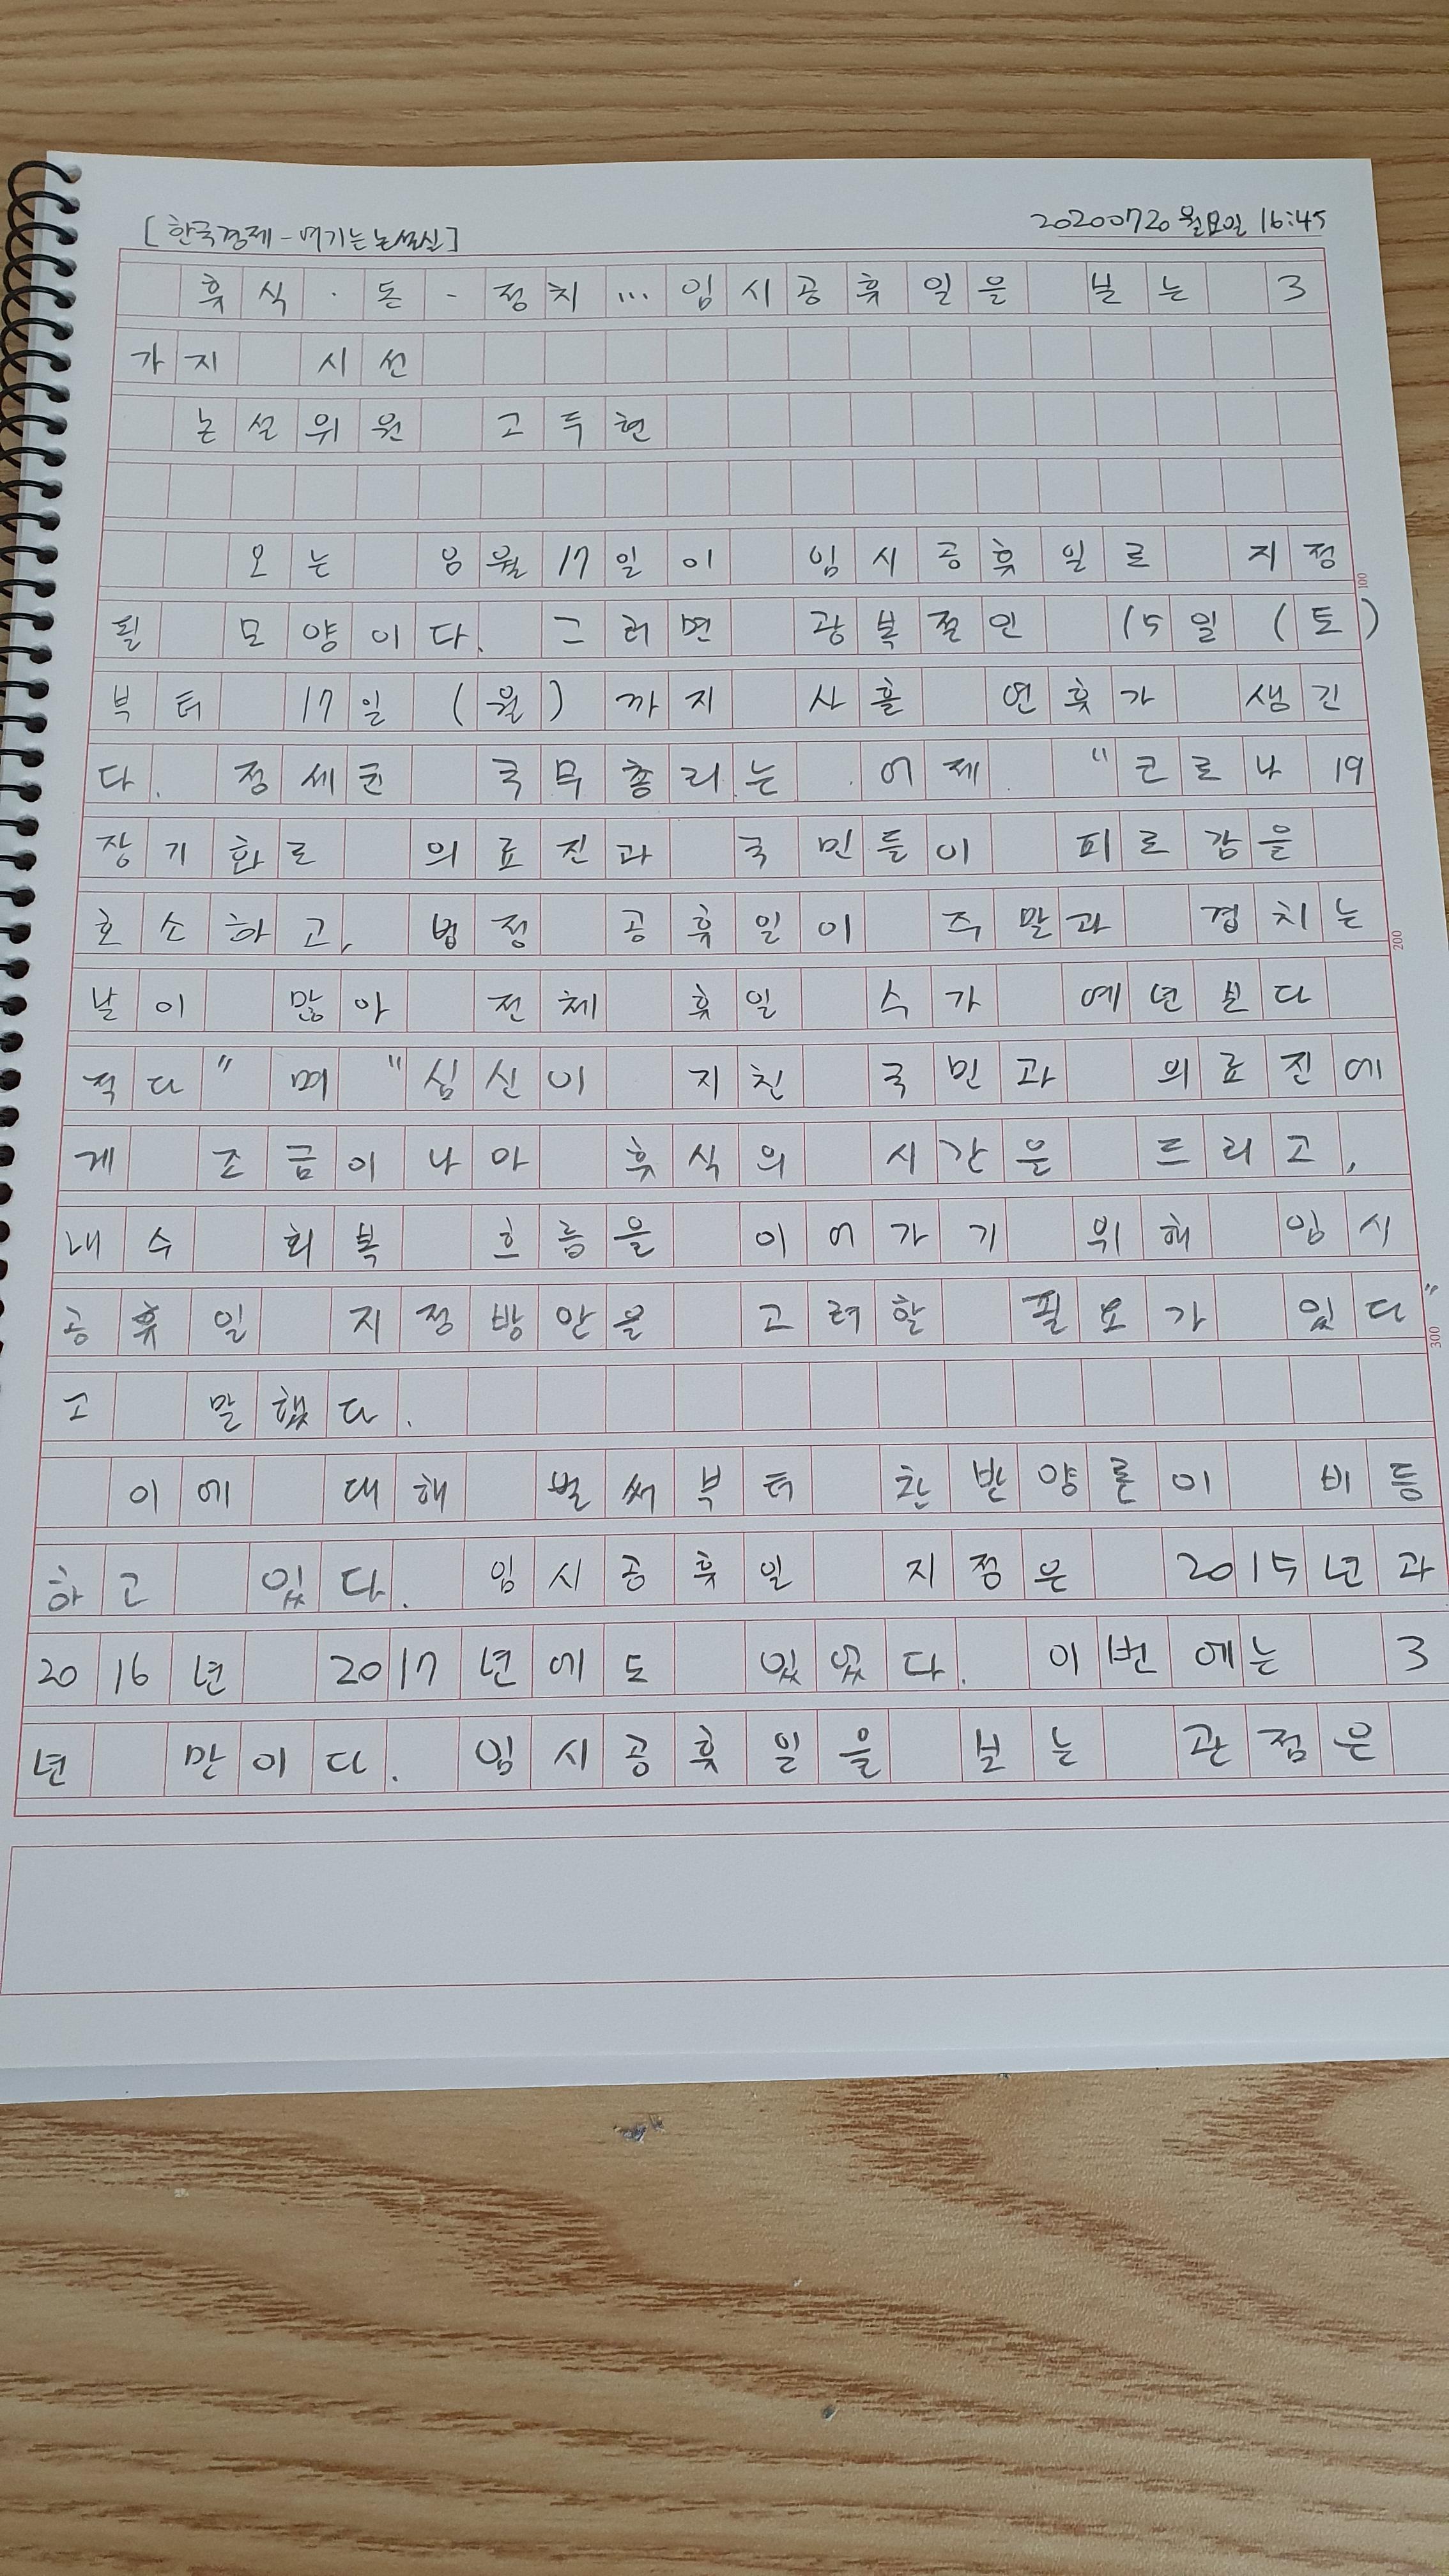 [한국경제-여기는 논설실]
20200720 월요일 16:45
휴식·돈-정치…임시공휴일을 보는 3
가지 시선
논설위원 고두현
오는 8월 17일이 임시공휴일로 지정
될 모양이다. 그러면 광복절인 15일 (토)
부터 17일 (월)까지 사흘 연휴가 생긴
다. 정세균 국무총리는 어제 "코로나 19
100
장기화로 의료진과 국민들이 피로감을
호소하고, 법정 공휴일이 주말과 겹치는
200
날이 많아 전체 휴일 수가 예년보다
적다"며 "심신이 지친 국민과 의료진에
게 조금이나마 휴식의 시간을 드리고,
내수 회복 흐름을 이어가기 위해 임시
공휴일 지정방안을 고려할 필요가 있다"
300
고 말했다.
이에 대해 벌써부터 찬반양론이 비등
하고 있다. 임시공휴일 지정은 2015년과
2016년 2017년에도 있었다. 이번에는 3
년 만이다. 임시공휴일을 보는 관점은